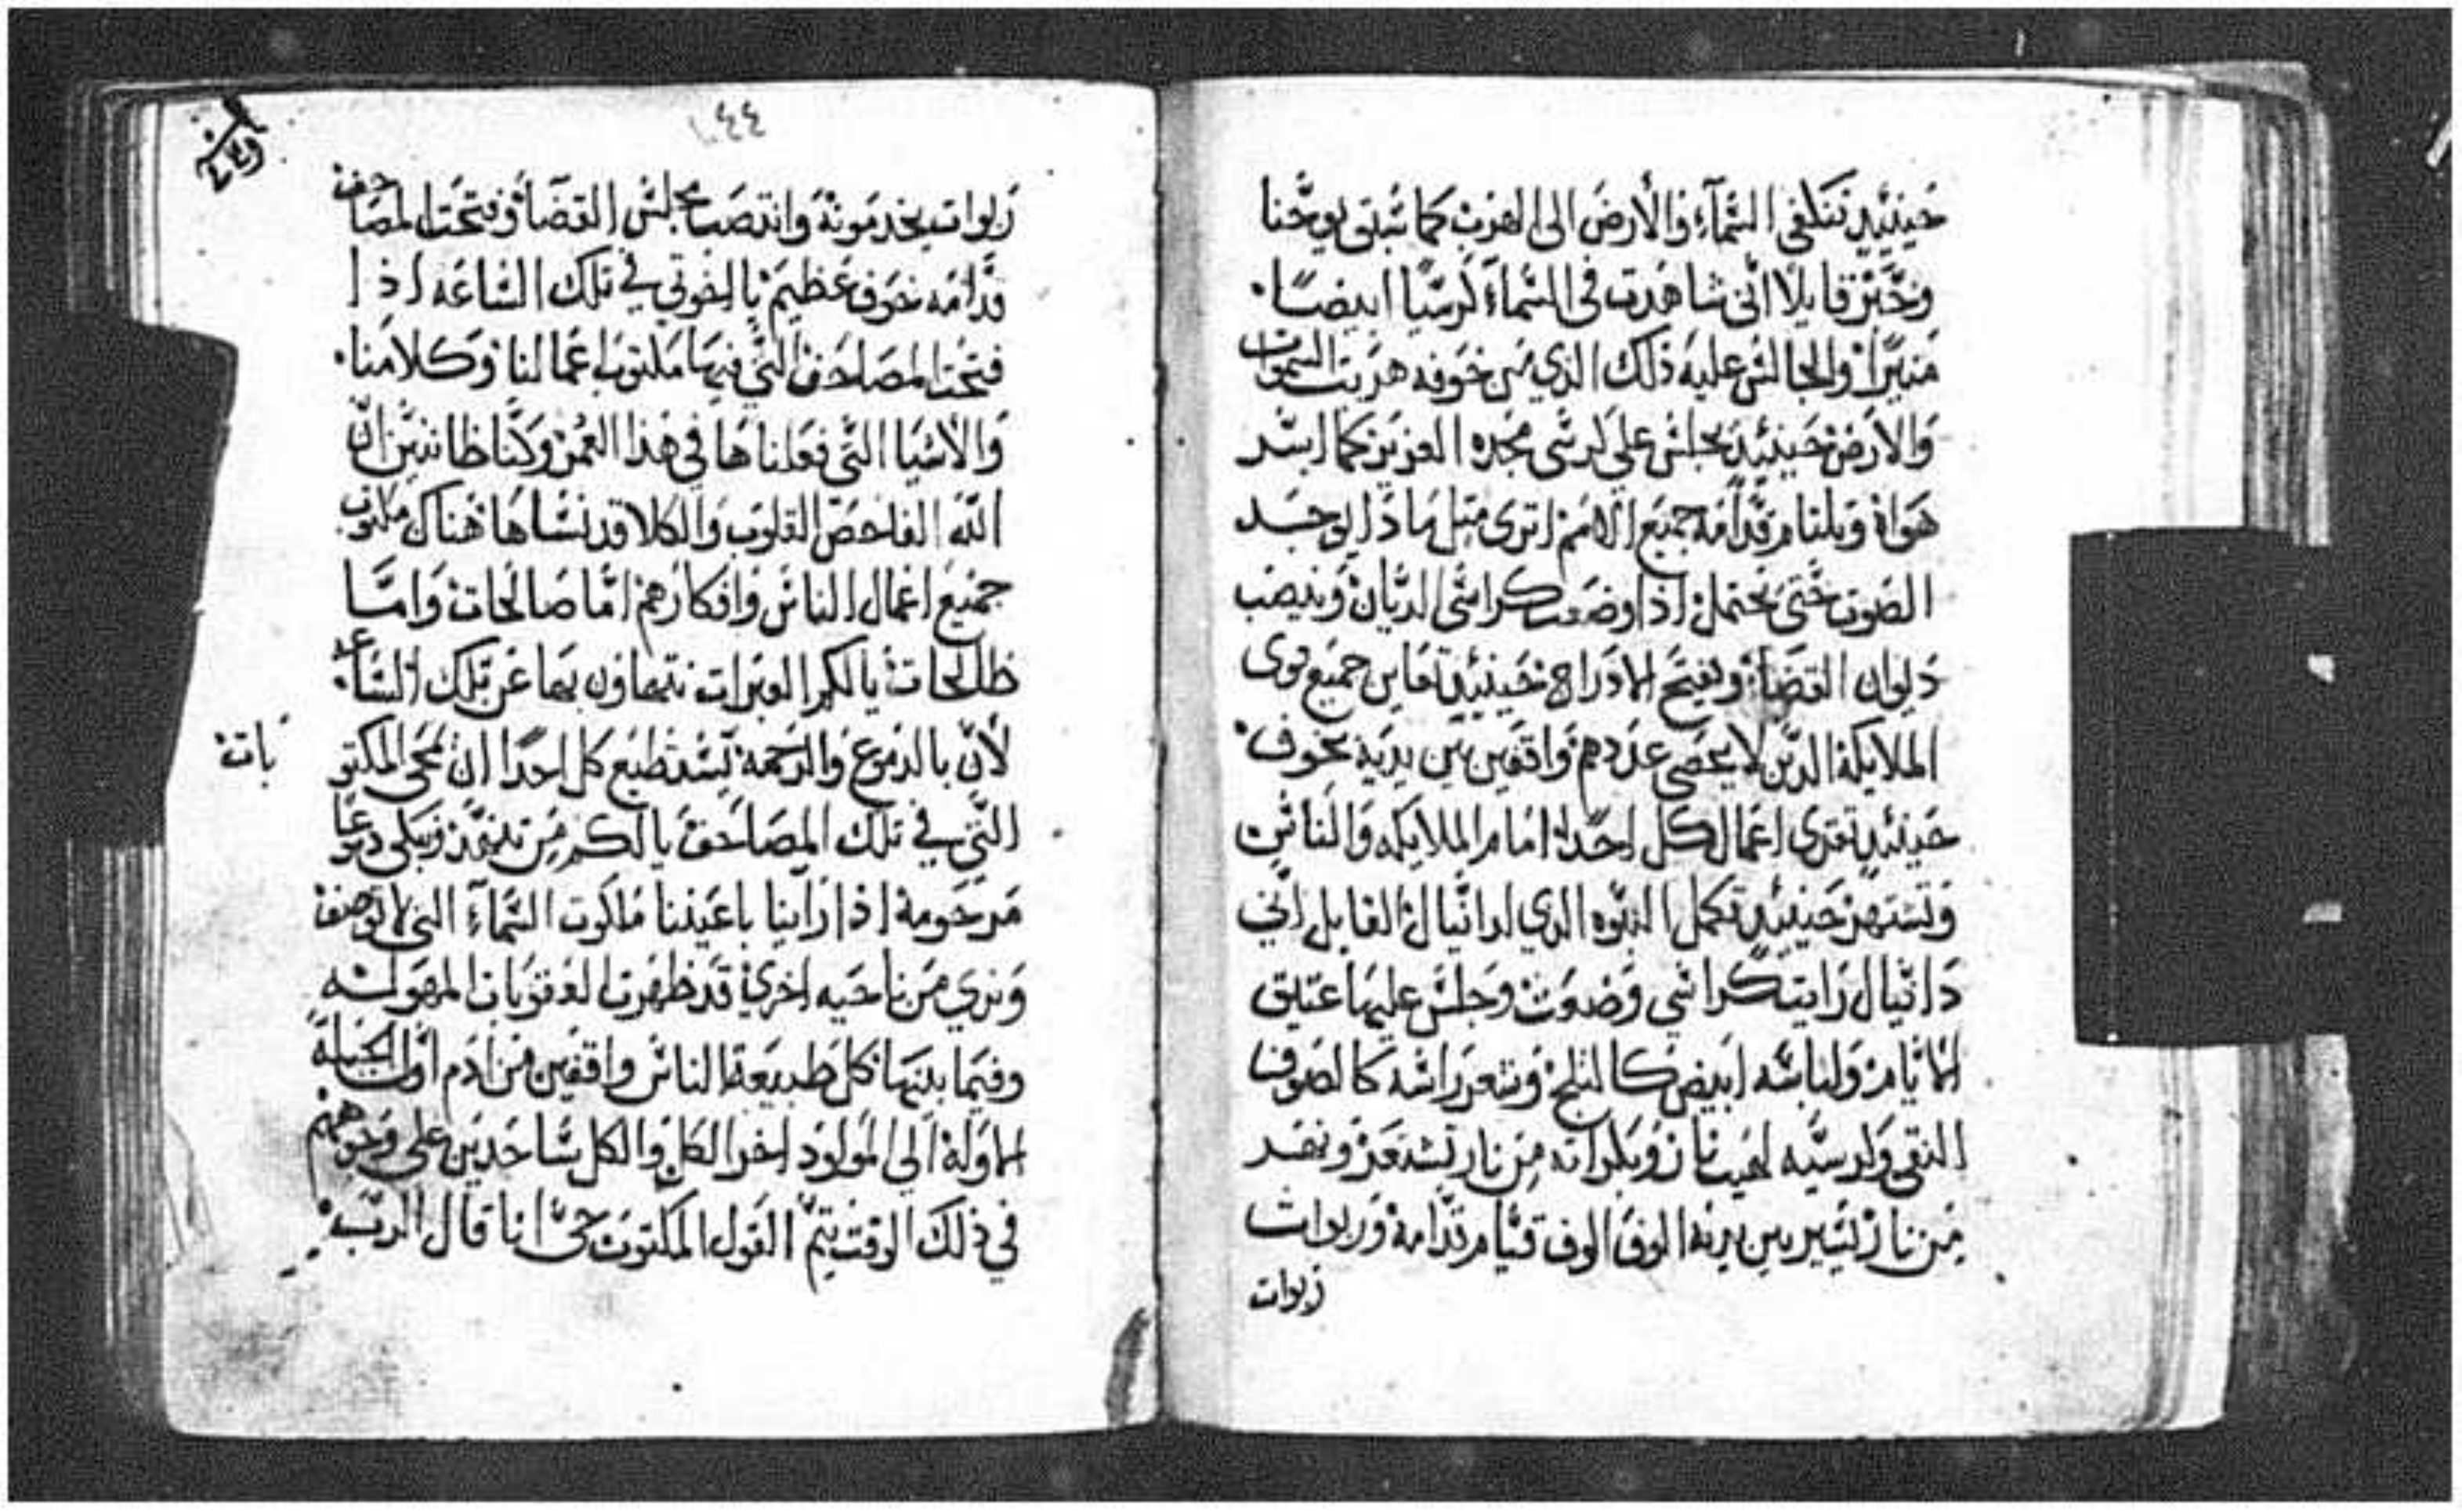 حينيئيدٍ تتكلفى السَّمآءِ والأرض الى الهرب كما سَبق يوحَّنا
وخَبَّر قايلًا انّى شاهدت فى السَّماءَ كرسيًّا ابيضًا.
مَنيرًا والجالس عليه ذلك الذي من خوفه هربت السَّموات
والارض حينيئيدٍ يجلس علي كرسَّى مجده العزيز كما
هَواهْ ويلنا م قدّامه جميع الامم اترى مثل ماذا يوجد
الصَوت حتى نحتمل اذا وضعت كراسَّى الديّان وينصب
ديوان القضاء وتفتح الادراج حينيئيدٍ تعاين جميع قوى
الملايكة الدَّين لا يحصى عددهم واقفين بين يديه بخوف
حينيئيدٍ تقرى اعمال كل احدًا امام الملايكه والناس
وتشتهر حينيئيدٍ تكمل النبّوه الدي لدانيال القايل انّي
دانيال رايت كراسَّي وضعت وجلس عليها عتيق
الايّام ولباسَه ابيض كالثلج وشعر راسَه كالصَوف
النقى وكرسيَّه لهيب نار وبكراته من نار تشتعر ونهر
من نار يسير بين يديه الوف الوف قيّام قدّامه وربوات
ربوات
٤٤
ربوات يخدمونة وانتصب مجلس القضَا وفتحت المصَاحف
قدّامه خوف عظيم يا اخوتي في تلك السَّاعَه اذا
فتحت المصَاحف التَّي فيها مكتوب اعمالنا وكلامنا.
والاشيا التَّى فعلناها في هذا العمر وكنّا ظانين انّ
اللّه الفاحص القلوب والكلا قد نسَاها هناك مكتوب
جميع اعمال الناس وافكارهم امّا صالحات وامَّا
طالحات يا لكم العبرات نتهاون بها عن تلك السَّاعه.
لأنّ بالدموع والرحمه تستطيع كل احدًا ان تمحى المكتو
بات
التَّي في تلك المصَاحف يا لكم من تنهّد وبكى دموعًا
مرحومة اذا راينا باعيننا ملكوت السَّمآءِ التى لا توصف
ونري من ناحيه اخري قد ظهرت العقوبات المهولـه
وفيما بينها كل طبيعة الناس واقفين من ادم اوّل الجبلة
الاولة الي المولود اخر الكل والكل سَّاجدين على وجوههم
في ذلك الوقت يتمّ القول المكتوب حىّ انا قال الربّ